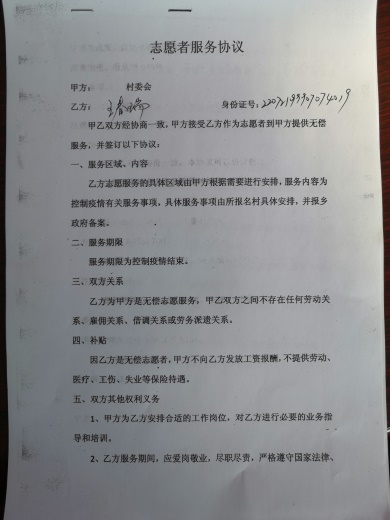 志愿者服务协议
甲方： 村委会
乙方： 王春 身份证号：
甲乙双方经协商一致，甲方接受乙方作为志愿者到甲方提供无偿
服务，并签订以下协议：
一、服务区域、内容
乙方志愿服务的具体区域由甲方根据需要进行安排，服务内容为
控制疫情有关服务事项，具体服务事项由所报名村具体安排，并报乡
政府备案。
二、服务期限
服务期限为控制疫情结束。
三、双方关系
乙方为甲方是无偿志愿服务，甲乙双方之间不存在任何劳动关
系、雇佣关系、借调关系或劳务派遣关系。
四、补贴
因乙方是无偿志愿者，甲方不向乙方发放工资报酬，不提供劳动、
医疗、工伤、失业等保险待遇。
五、双方其他权利义务
1、甲方为乙方安排合适的工作岗位，对乙方进行必要的业务指
导和培训。
2、乙方服务期间，应爱岗敬业，尽职尽责，严格遵守国家法律、